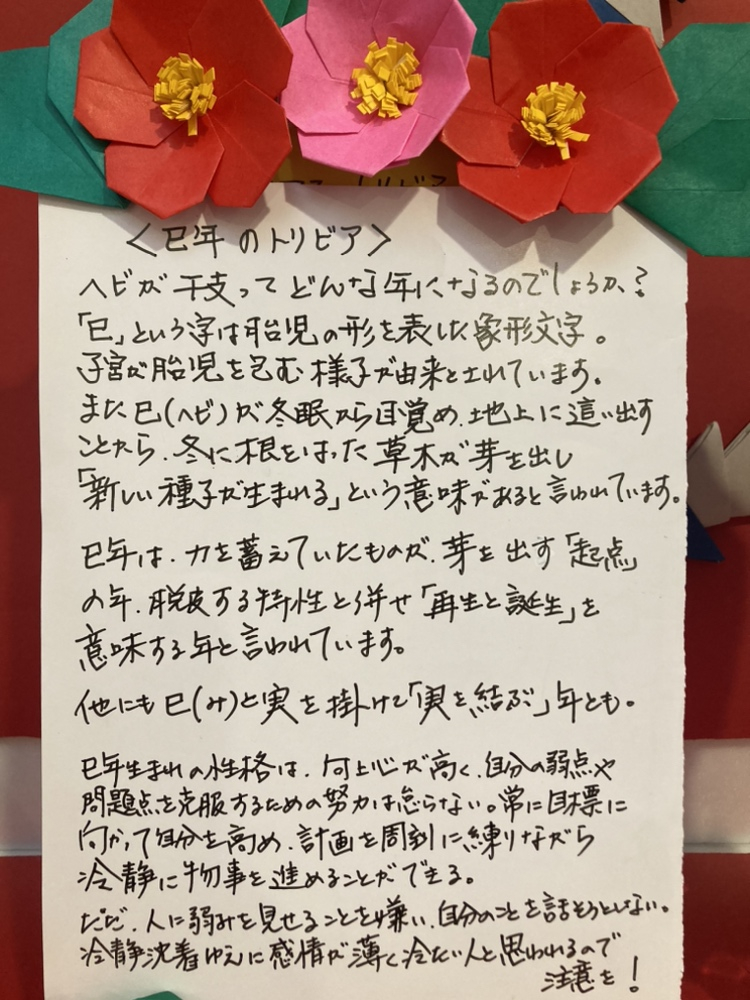 〈巳年のトリビア〉
ヘビが干支ってどんな年になるのでしょうか？
「巳」という字は胎児の形を表した象形文字。
子宮が胎児を包む様子が由来とされています。
また巳(ヘビ)が冬眠から目覚め、地上に這い出す
ことから、冬に根をはった草木が芽を出し
「新しい種子が生まれる」という意味があると言われています。
巳年は、力を蓄えていたものが、芽を出す「起点」
の年、脱皮する特性と併せ「再生と誕生」を
意味する年と言われています。
他にも巳(み)と実を掛けて「実を結ぶ」年とも。
巳年生まれの性格は、向上心が高く、自分の弱点や
問題点を克服するための努力は怠らない。常に目標に
向かって自分を高め、計画を周到に練りながら
冷静に物事を進めることができる。
ただ、人に弱みを見せることを嫌い、自分のことを話そうとしない。
冷静沈着ゆえに感情が薄く冷たい人と思われるので
注意を！